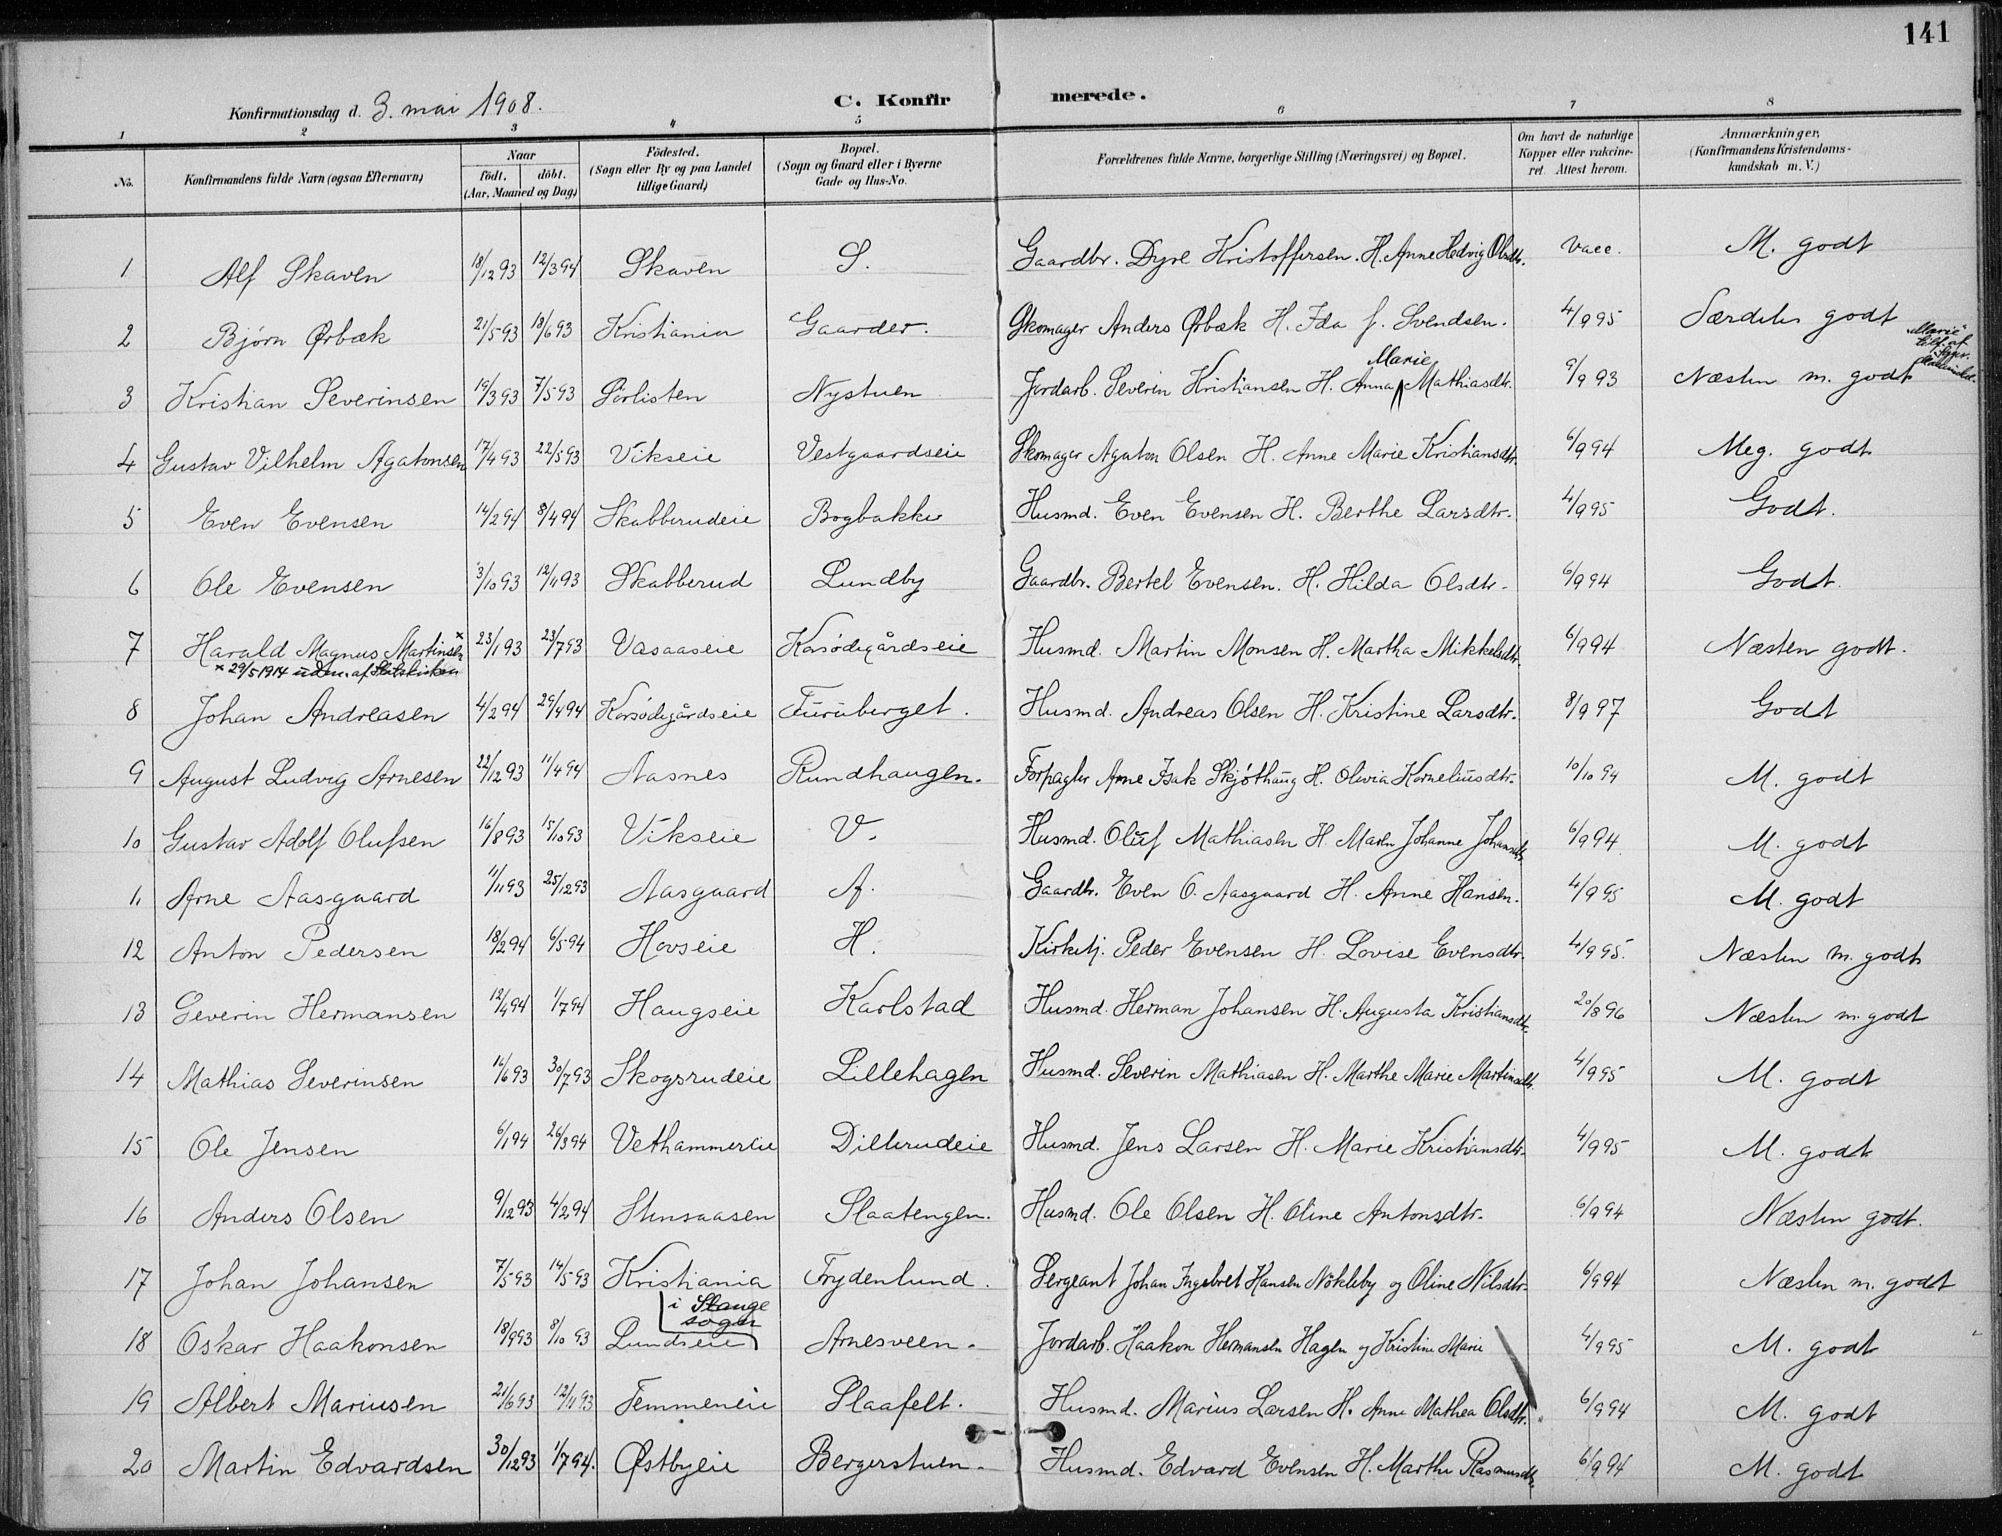 141
Konfirmationsdag d. 3. mai 1908.
C. Konfirmerede.
1 2 3 4 5 6 7 8
No. Konfirmandens fulde Navn (ogsaa Efternavn) Naar födt. döbt. (Aar, Maaned og Dag) Födested. (Sogn eller By og paa Landet tillige Gaard) Bopæl. (Sogn og Gaard eller i Byerne Gade og Hus-No. Forældrenes fulde Navne, borgerlige Stilling (Næringsvei) og Bopæl. Om havt de naturlige Kopper eller vakcineret. Attest herom. Anmærkninger. (Konfirmandens Kristendomskundskab m. V.)
1 Alf Skaven 18/12 93 12/3 94 Skaven S. Gaardbr. Dyre Kristoffersen. H. Anne Hedvig Olsdtr. Vacc. M. godt
2 Bjørn Ørbæk 21/5 93 18/6 93 Kristiania Gaarder. Skomager Anders Ørbæk H. Ida f. Svendsen. 4/9 95 Særdeles godt
3 Kristian Severinsen 19/3 93 7/5 93 Sörlisten Nystuen Jordarb. Severin Kristiansen H. Anna Marie Mathiasdtr. 9/9 93 Næsten m. godt "Marie" tilf. af
4 Gustav Vilhelm Agatonsen 17/4 93 22/5 93 Vikseie Vestgaardseie Skomager Agaton Olsen H. Anne Marie Kristiansdtr. 6/9 94 Meg. godt
5 Even Evensen 14/2 94 8/4 94 Skabberudeie Bogbakke Husmd. Even Evensen H. Berthe Larsdtr. 4/9 95 Godt.
6 Ole Evensen 3/10 93 12/11 93 Skabberud Lundby Gaardbr. Bertel Evensen. H. Hilda Olsdtr. 6/9 94 Godt.
7 Harald Magnus Martinsen x 23/1 93 23/7 93 Vasaaseie Korsødegårdseie Husmd. Martin Monsen H. Martha Mikkelsdtr. 6/9 94 Næsten godt.
x 29/5 1914 udm. af Statskirken
8 Johan Andreasen 4/2 94 29/4 94 Korsødegårdseie Furuberget. Husmd. Andreas Olsen H. Kristine Larsdtr. 8/9 97 Godt
9 August Ludvig Arnesen 22/12 93 11/4 94 Aasnes Rundhaugen. Forpagter Arne Isak Skjøthaug H. Olivia Korneliusdtr. 10/10 94 M. godt
10 Gustav Adolf Olufsen 16/8 93 15/10 93 Vikseie V. Husmd. Oluf Mathiasen H. Maren Johanne Johansdtr. 6/9 94 M. godt
11 Arne Aasgaard 11/11 93 25/12 93 Aasgaard A. Gaardbr. Even O. Aasgaard H. Anne Hansen. 4/9 95 M. godt
12 Anton Pedersen 18/2 94 6/5 94 Hovseie H. Kirketj. Peder Evensen H. Lovise Evensdtr. 4/9 95. Næsten m. godt
13 Severin Hermansen 12/4 94 1/7 94 Haugseie Karlstad Husmd. Herman Johansen H. Augusta Kristiansdtr. 20/8 96 Næsten m. godt
14 Mathias Severinsen 16/6 93 30/7 93 Skogsrudeie Lillehagen Husmd. Severin Mathiasen H. Marthe Marie Martinsdtr. 4/9 95 M. godt
15 Ole Jensen 6/1 94 26/3 94 Vethammereie Dillerudeie Husmd. Jens Larsen H. Marie Kristiansdtr. 4/9 95 M. godt
16 Anders Olsen 9/12 93 4/2 94 Stensaasen Slaatengen. Husmd. Ole Olsen H. Oline Antonsdtr. 6/9 94 Næsten godt.
17 Johan Johansen 7/5 93 14/5 93 Kristiania Frydenlund. Sergeant Johan Ingebret Hansen Nökleby og Oline Nilsdtr. 6/9 94 Næsten m. godt
18 Oskar Haakonsen 18/9 93 8/10 93 Lundseie i Stange sogn Arnesveen. Jordarb. Haakon Hermansen Hagen og Kristine Marie 4/9 95 M. godt
19 Albert Mariusen 21/6 93 12/11 93 Femmeneie Slaafelt. Husmd. Marius Larsen H. Anne Mathea Olsdtr. 6/9 94 M. godt
20 Martin Edvardsen 30/12 93 1/7 94. Østbyeie Bergerstuen. Husmd. Edvard Evensen H. Marthe Rasmusdtr. 6/9 94 M. godt